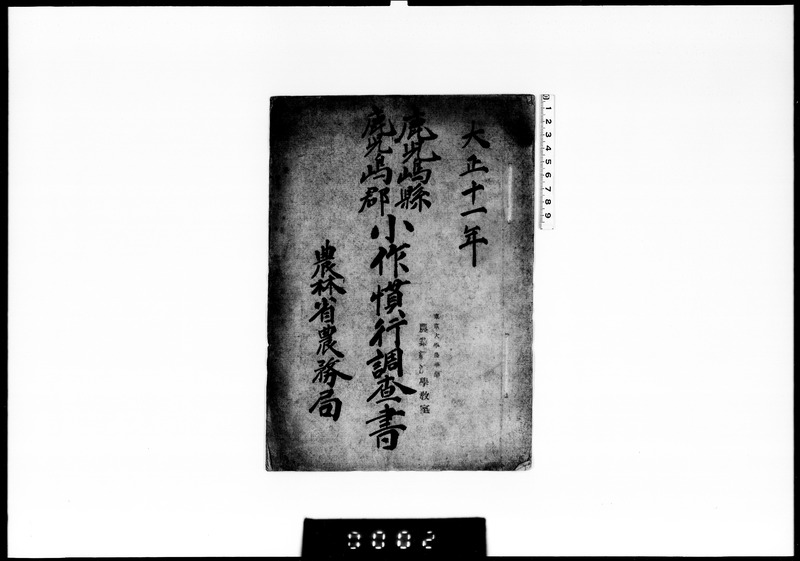 大正十一年
鹿児嶋縣
鹿児嶋郡
小作慣行調査書
農林省農務局
東京大学農学部
農業
學教室
1 2 3 4 5 6 7 8 9
0002